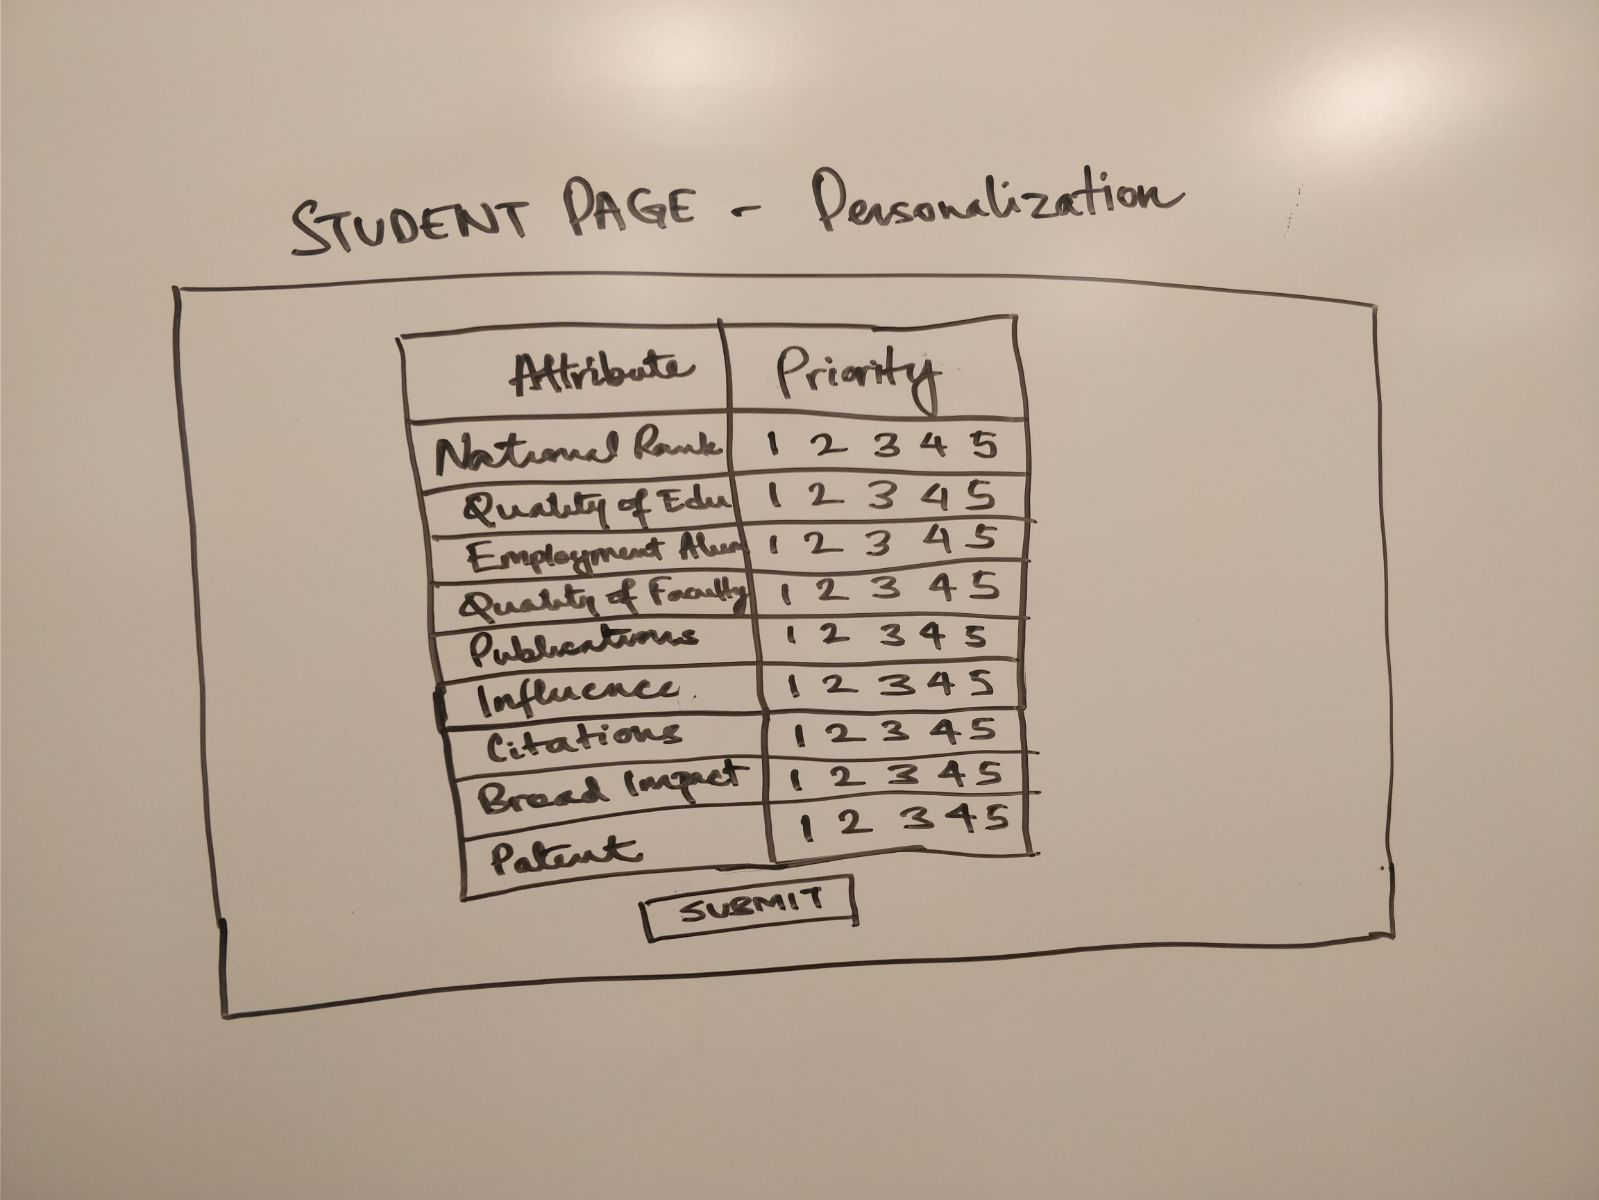 STUDENT PAGE - Personalization
Attribute Priority
National Rank 1 2 3 4 5
Quality of Edu 1 2 3 4 5
Employment Alum 1 2 3 4 5
Quality of Faculty 1 2 3 4 5
Publications 1 2 3 4 5
Influence 1 2 3 4 5
Citations 1 2 3 4 5
Broad Impact 1 2 3 4 5
Patent 1 2 3 4 5
SUBMIT